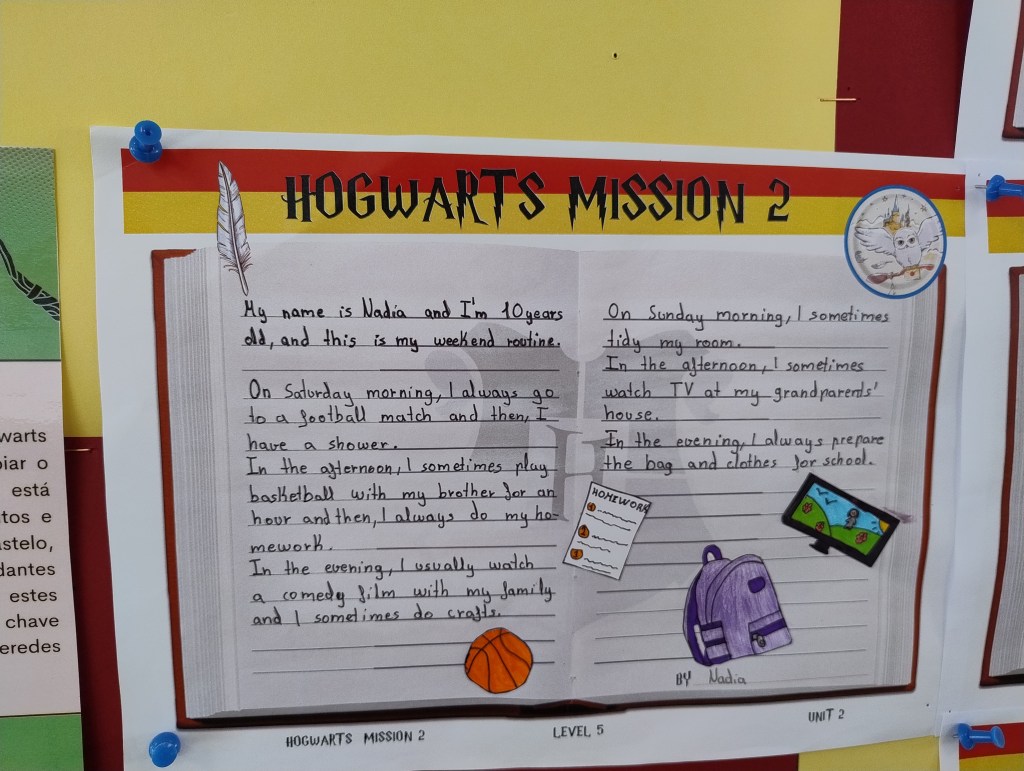 HOGWARTS MISSION 2
My name is Nadia and I'm 10 years
old, and this is my weekend routine.
On Saturday morning, I always go
to a football match and then, I
have a shower.
In the afternoon, I sometimes play
basketball with my brother for an
hour and then, I always do my ho-
mework.
In the evening, I usually watch
a comedy film with my family
and I sometimes do crafts.
On Sunday morning, I sometimes
tidy my room.
In the afternoon, I sometimes
watch TV at my grandparents'
house.
In the evening, I always prepare
the bag and clothes for school.
HOMEWORK
1
2
3
BY Nadia
HOGWARTS MISSION 2
LEVEL 5
UNIT 2
warts
iar o
está
tos e
stelo,
dantes
estes
chave
eredes